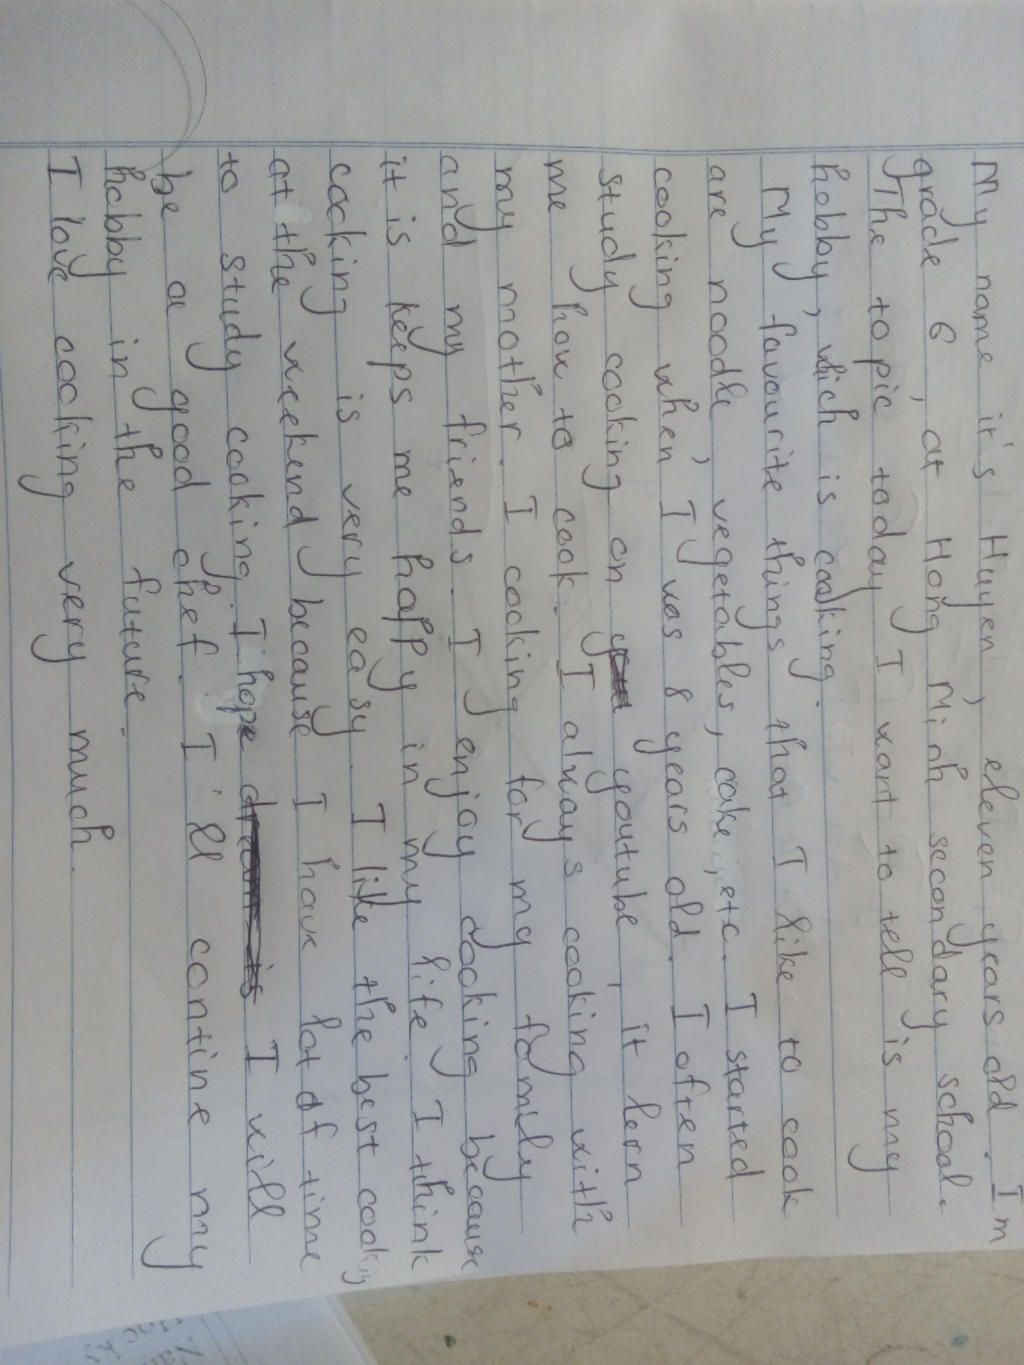 My name it's Huyen, eleven years old. I'm
grade 6, at Hong Minh secondary school.
The topic today I want to tell is my
hobby, wich is cooking.
My favourite things that I like to cook
are noodle, vegetables, cake, etc. I started
cooking when, I was 8 years old. I often
study cooking on youtube, it lern
me how to cook. I always cooking with
my mother. I cooking for my family
and my friends. I enjoy cooking because
it is keeps me happy in my life. I think
cooking is very easy. I like the best cooking
at the weekend because I have lot of time
to study cooking. I hope I will
be a good chef. I'll contine my
hobby in the future.
I love cooking very much.